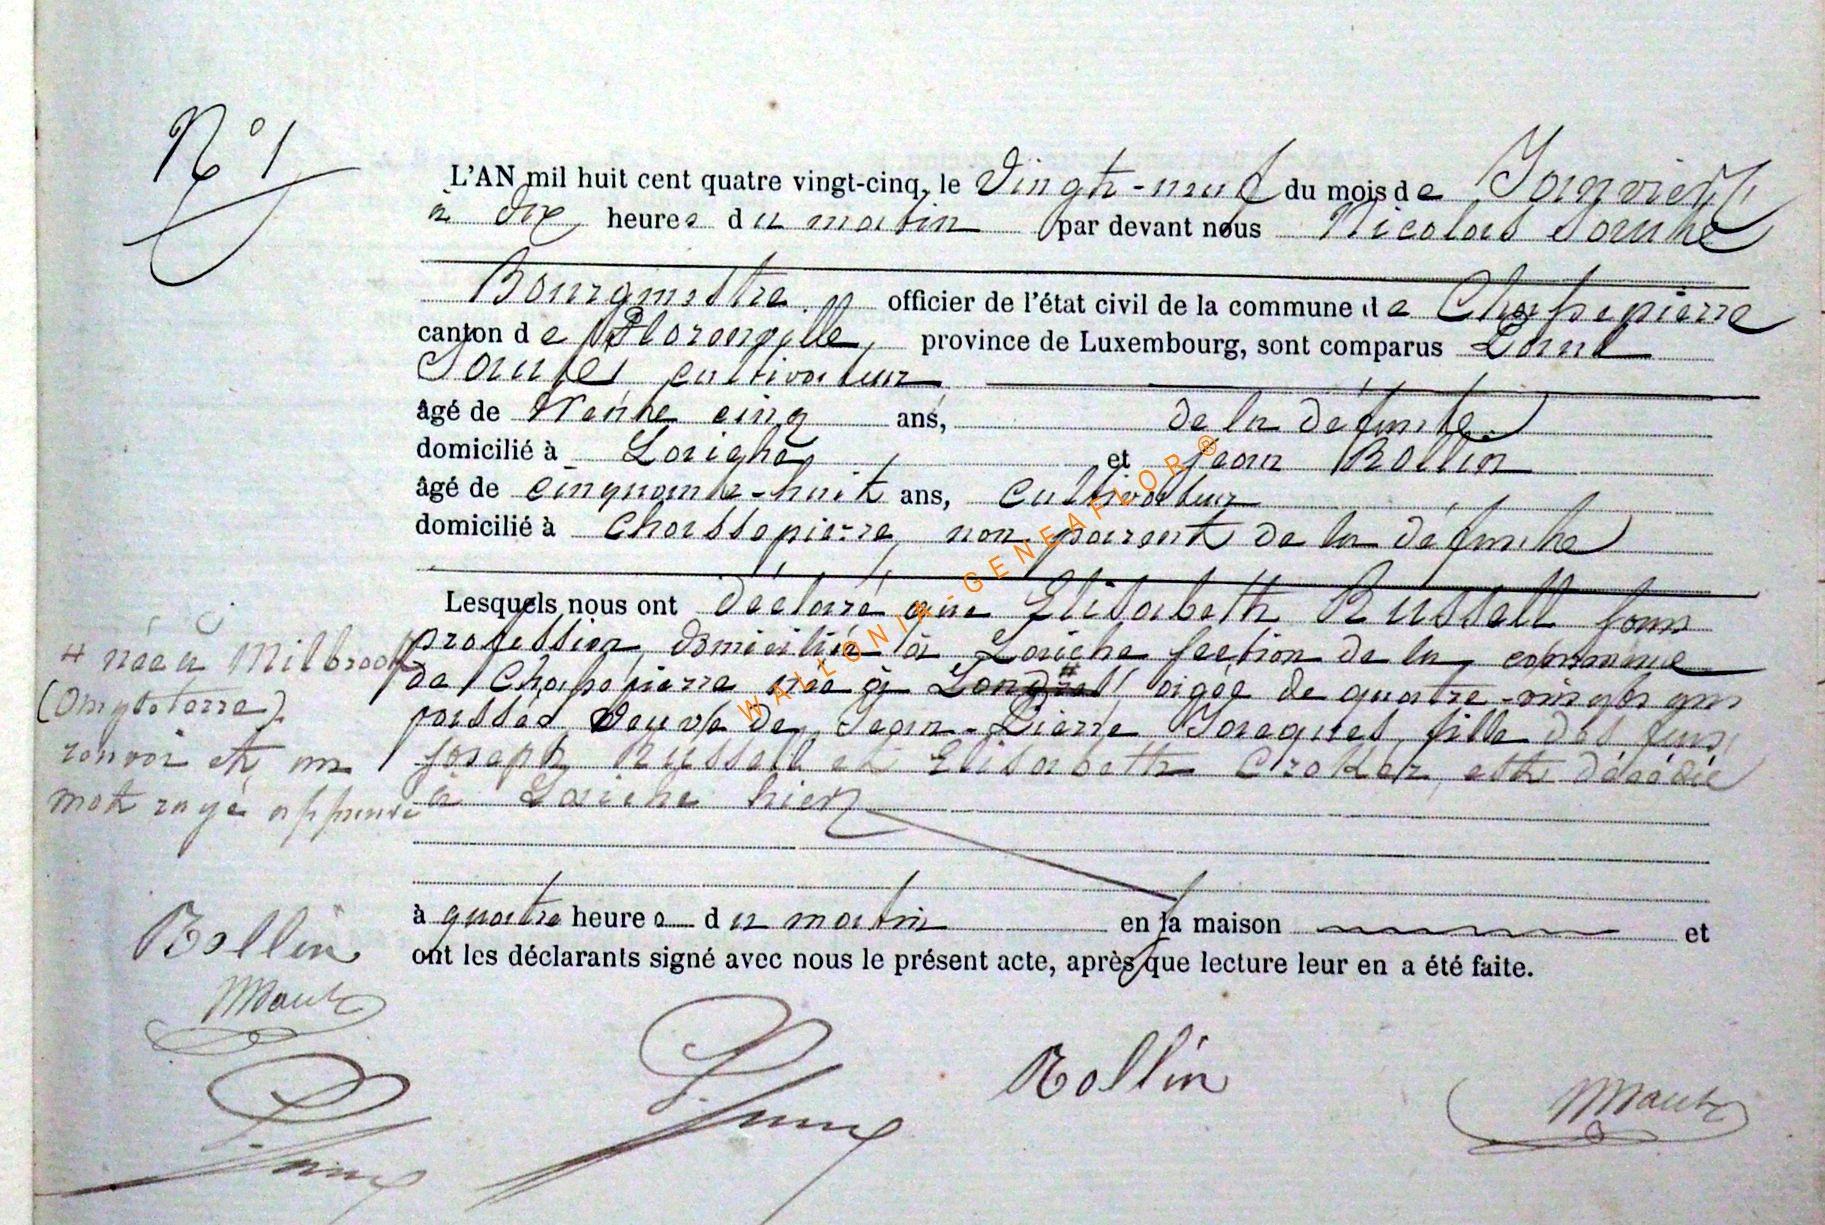 N° 1
L'AN mil huit cent quatre vingt-cinq, le vingt-neuf du mois de Janvier
à dix heures du matin par devant nous Nicolas
Bourgmestre officier de l'état civil de la commune de Chassepierre
canton de Florenville, province de Luxembourg, sont comparus
cultivateur
âgé de trente cinq ans, de la défunte
domicilié à Laiche et Jean Rollin
âgé de cinquante-huit ans, cultivateur
domicilié à Chassepierre, non parent de la défunte
Lesquels nous ont déclaré que Elisabeth Russell sans
profession, domiciliée à Laiche section de la commune
de Chassepierre née à # âgée de quatre-vingts ans
passés veuve de Jean-Pierre Jacques, fille des feus
Joseph Russell et Elisabeth Croker, est décédée
à Laiche hier
à quatre heures du matin en la maison et
ont les déclarants signé avec nous le présent acte, après que lecture leur en a été faite.
# née à Milbrook
(Angleterre)
renvoi et un
mot rayé approuvé
Rollin
Rollin
WALLONIA-GENEAFLOR®